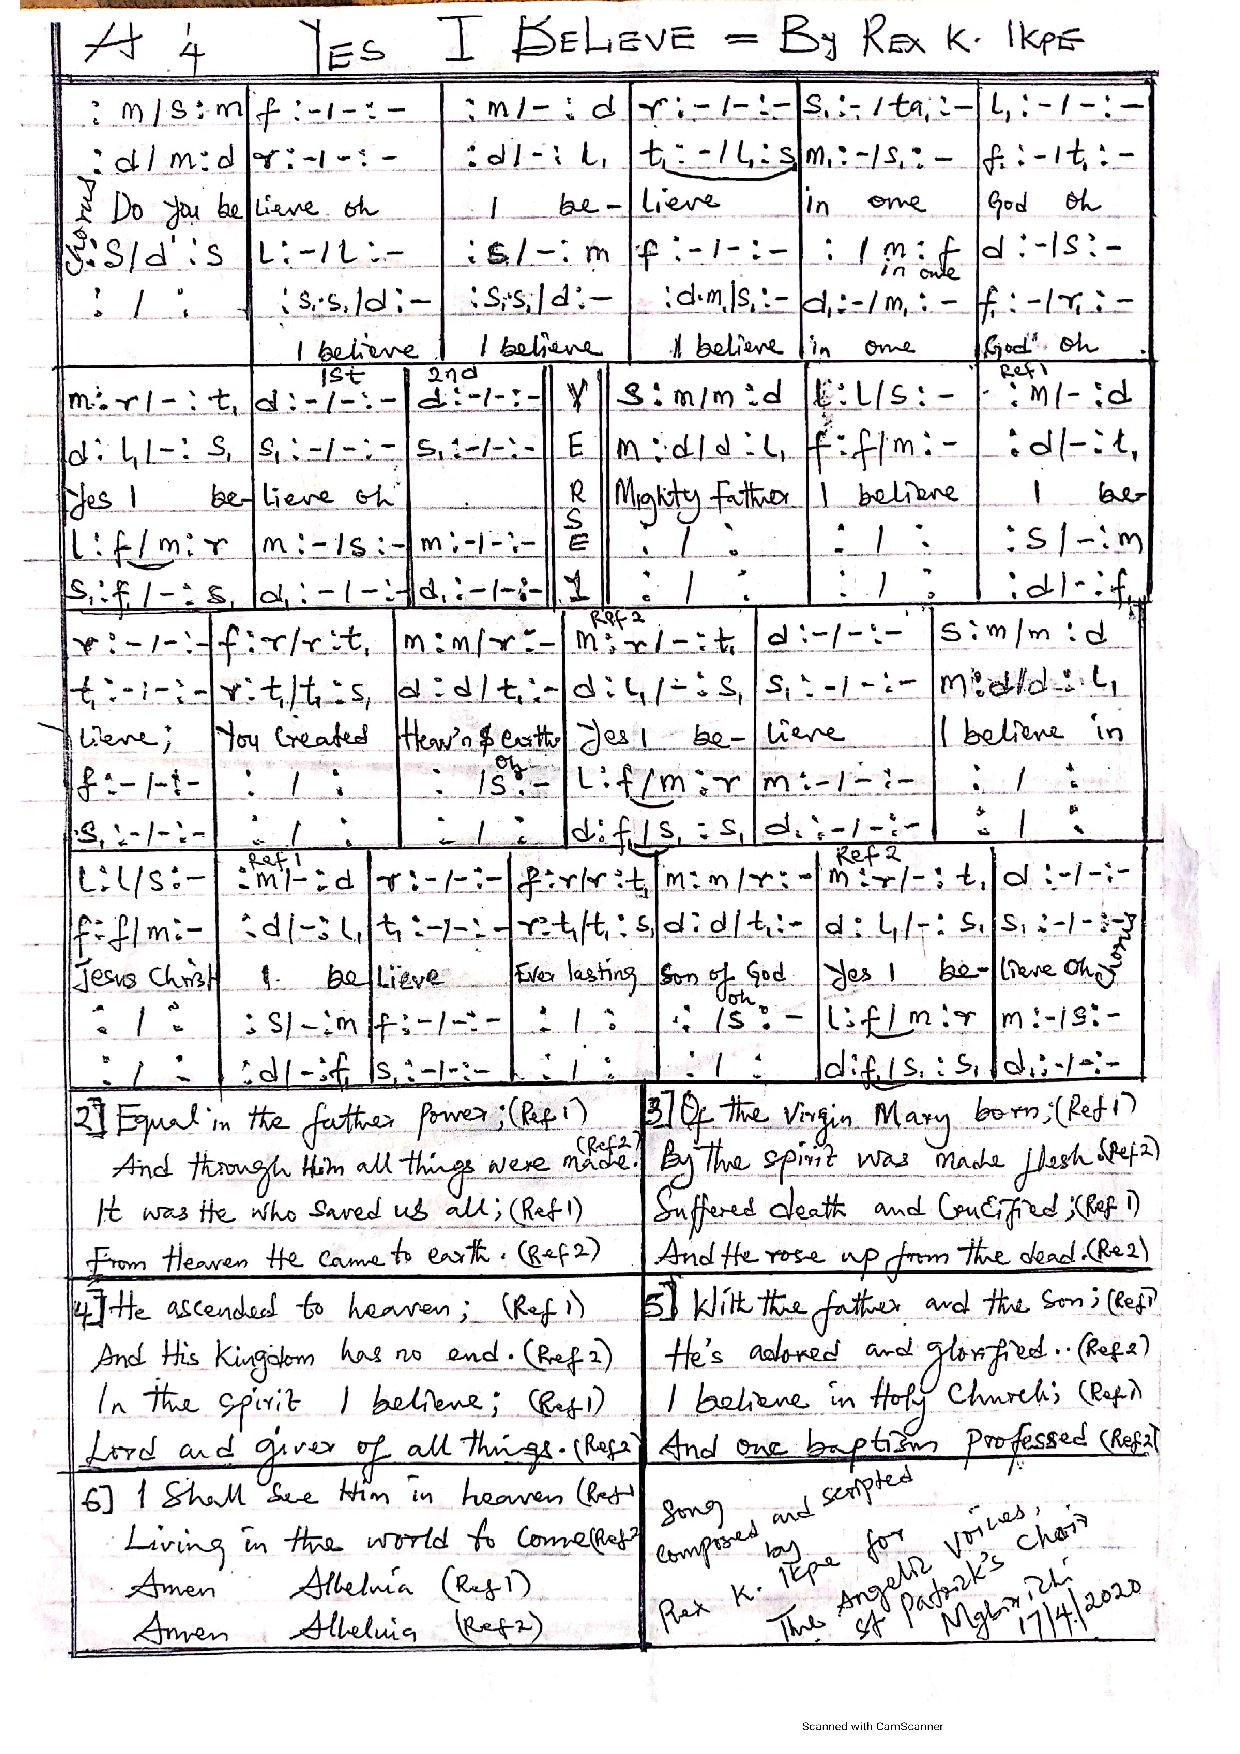 A 4 YES I BELIEVE = By REX K. IKPE
: m / s : m f : - / - : - : m / - : d r : - / - : - s, : - / ta, : - l, : - / - : -
: d / m : d r : - / - : - : d / - : l, t, : - / l, : s, m, : - / s, : - f, : - / t, : -
Chorus
Do you be lieve oh I be- lieve in one God oh
: s / d' : s l : - / l : - : s / - : m f : - / - : - : / m : f d : - / s : -
in one
: / : : s, . s, / d : - : s, . s, / d : - : d . m / s, : - d, : - / m, : - f, : - / r, : -
I believe I believe I believe in one God oh
1st 2nd Ref 1
m : r / - : t, d : - / - : - d : - / - : - V s : m / m : d l : l / s : - : m / - : d
d : l, / - : s, s, : - / - : - s, : - / - : - E m : d / d : l, f : f / m : - : d / - : t,
Yes I be- lieve oh R Mighty father I believe I be-
S
l : f / m : r m : - / s : - m : - / - : - E : / : : / : : s / - : m
s, : f, / - : s, d, : - / - : - d, : - / - : - 1 : / : : / : : d / - : f,
Ref 2
r : - / - : - f : r / r : t, m : m / r : - m : r / - : t, d : - / - : - s : m / m : d
t, : - : - : - r : t, / t, : s, d : d / t, : - d : l, / - : s, s, : - / - : - m : d / d : l,
lieve; You created Heav'n & earth Yes I be- lieve I believe in
oh
f : - / - : - : / : : / s : - l : f / m : r m : - / - : - : / :
s, : - / - : - : / : : / : d : f, / s, : s, d, : - / - : - : / :
Ref 1 Ref 2
l : l / s : - : m / - : d r : - / - : - f : r / r : t, m : m / r : - m : r / - : t, d : - / - : -
f : f / m : - : d / - : l, t, : - / - : - r : t, / t, : s, d : d / t, : - d : l, / - : s, s, : - / - : -
Jesus Christ I be lieve Ever lasting Son of God Yes I be- lieve oh Chorus
oh
: / : : s / - : m f : - / - : - : / : : / s : - l : f / m : r m : - / s : -
: / : : d / - : f, s, : - / - : - : / : : / : d : f, / s, : s, d, : - / - : -
2] Equal in the father power; (Ref 1)
And through Him all things were made. (Ref 2)
It was He who saved us all; (Ref 1)
From Heaven He came to earth. (Ref 2)
3] Of the virgin Mary born; (Ref 1)
By the spirit was made flesh (Ref 2)
Suffered death and Crucified; (Ref 1)
And He rose up from the dead. (Re 2)
4] He ascended to heaven; (Ref 1)
And His Kingdom has no end. (Ref 2)
In the spirit I believe; (Ref 1)
Lord and giver of all things. (Ref 2
5] With the father and the Son; (Ref 1
He's adored and glorified.. (Ref 2)
I believe in Holy Church; (Ref 1)
And one baptism professed (Ref 2)
6] I Shall See Him in heaven (Ref 1
Living in the world to come (Ref 2
Amen Allelluia (Ref 1)
Amen Allelluia (Ref 2)
Song
composed and scripted
by
Rex K. Ikpe for
The Angelic voices,
st patrick's choir
Mgbirichi
17/4/2020
Scanned with CamScanner